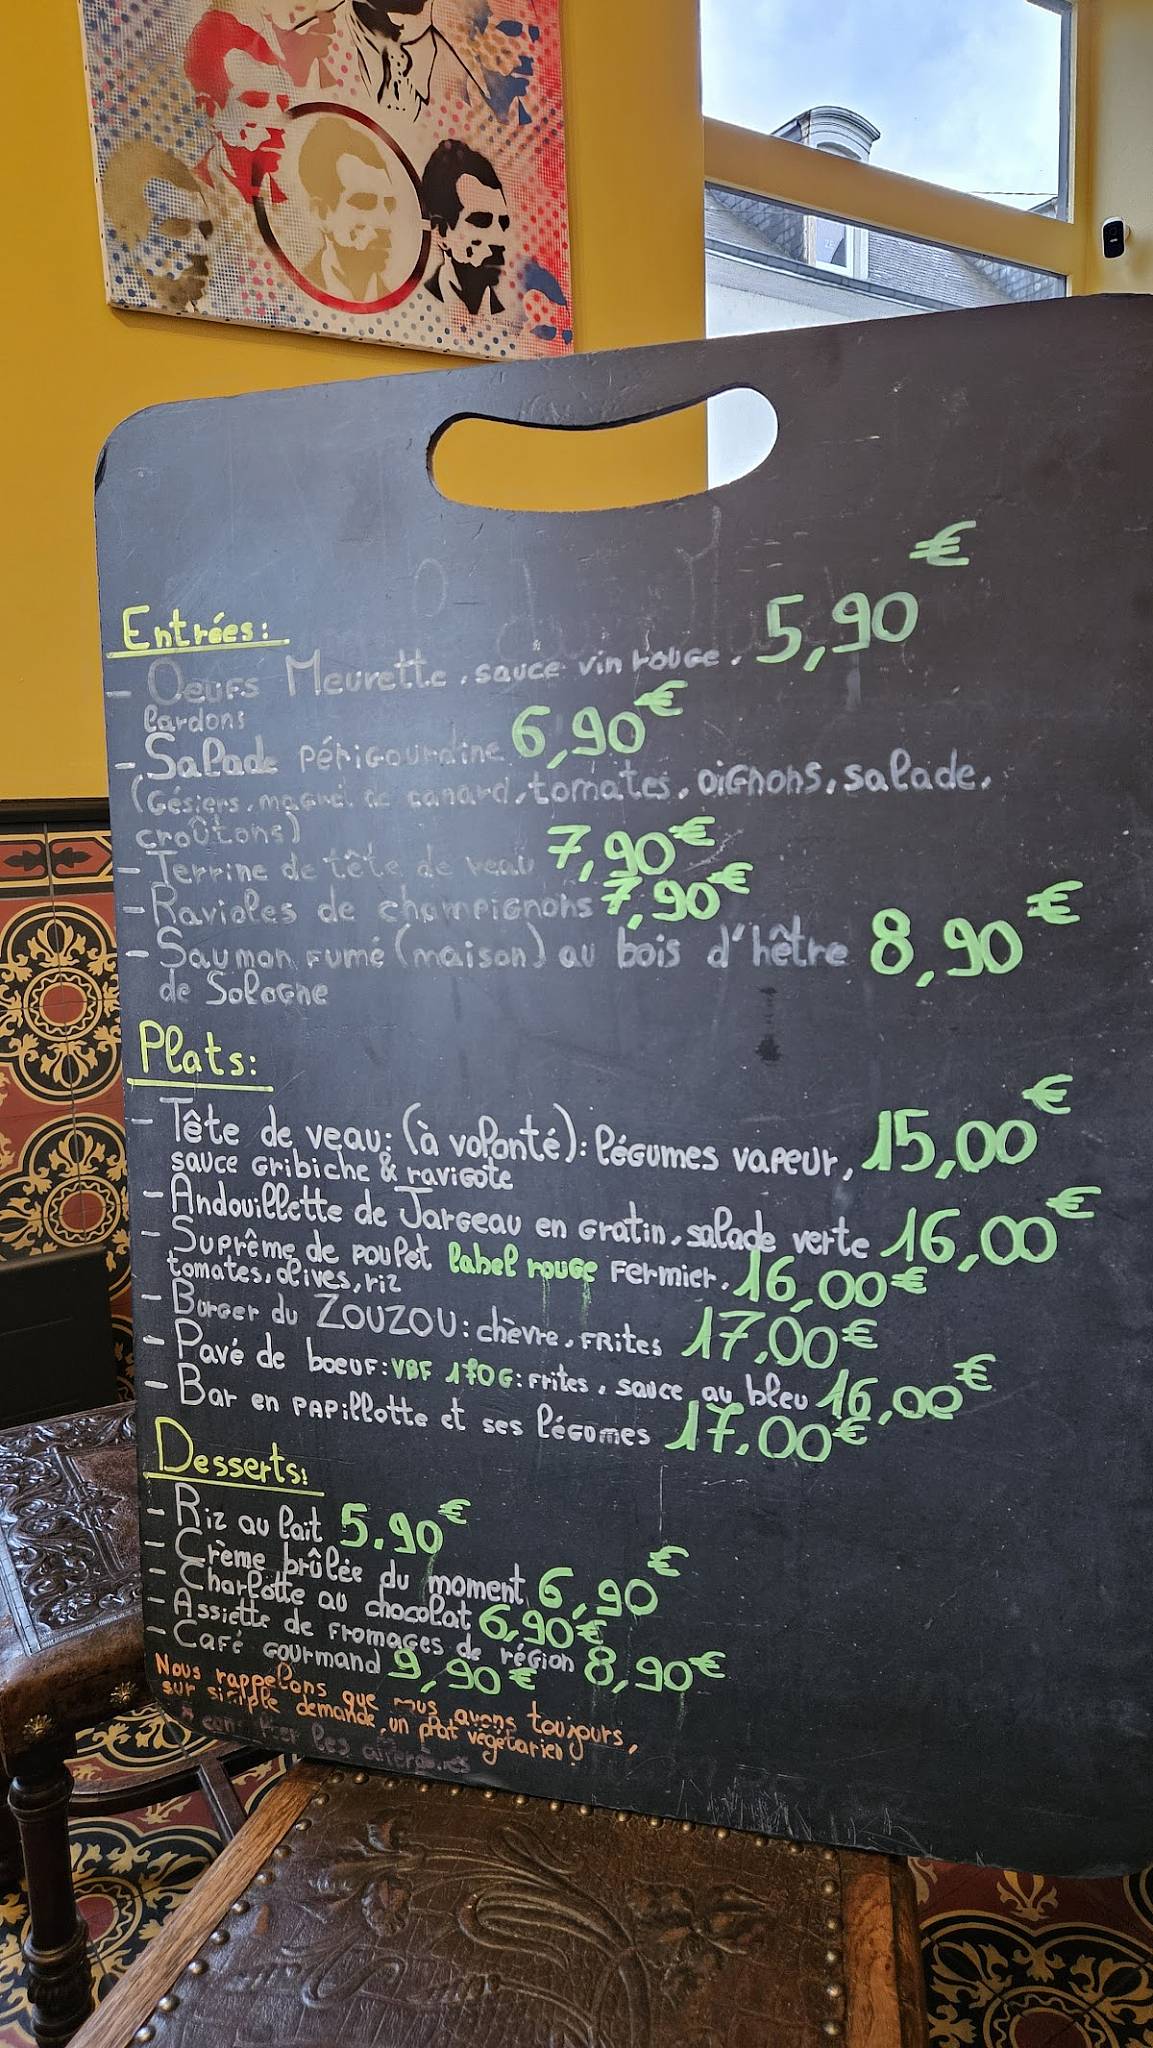 Entrées:
- Oeufs Meurette, sauce vin rouge, 5,90€
lardons
- Salade périgourdine 6,90€
(Gésiers, magret de canard, tomates, oignons, salade,
croûtons)
- Terrine de tête de veau 7,90€
- Ravioles de champignons 7,90€
- Saumon fumé (maison) au bois d'hêtre 8,90€
de Sologne
Plats:
- Tête de veau: (à volonté): légumes vapeur, 15,00€
sauce gribiche & ravigote
- Andouillette de Jargeau en gratin, salade verte 16,00€
- Suprême de poulet label rouge fermier, 16,00€
tomates, olives, riz
- Burger du ZOUZOU: chèvre, frites 17,00€
- Pavé de boeuf: VBF 170G: frites, sauce au bleu 16,00€
- Bar en papillotte et ses légumes 17,00€
Desserts:
- Riz au lait 5,90€
- Crème brûlée du moment 6,90€
- Charlotte au chocolat 6,90€
- Assiette de fromages de région 8,90€
- Café gourmand 9,90€
Nous rappelons que nous avons toujours,
sur simple demande, un plat végétarien!
les allergènes